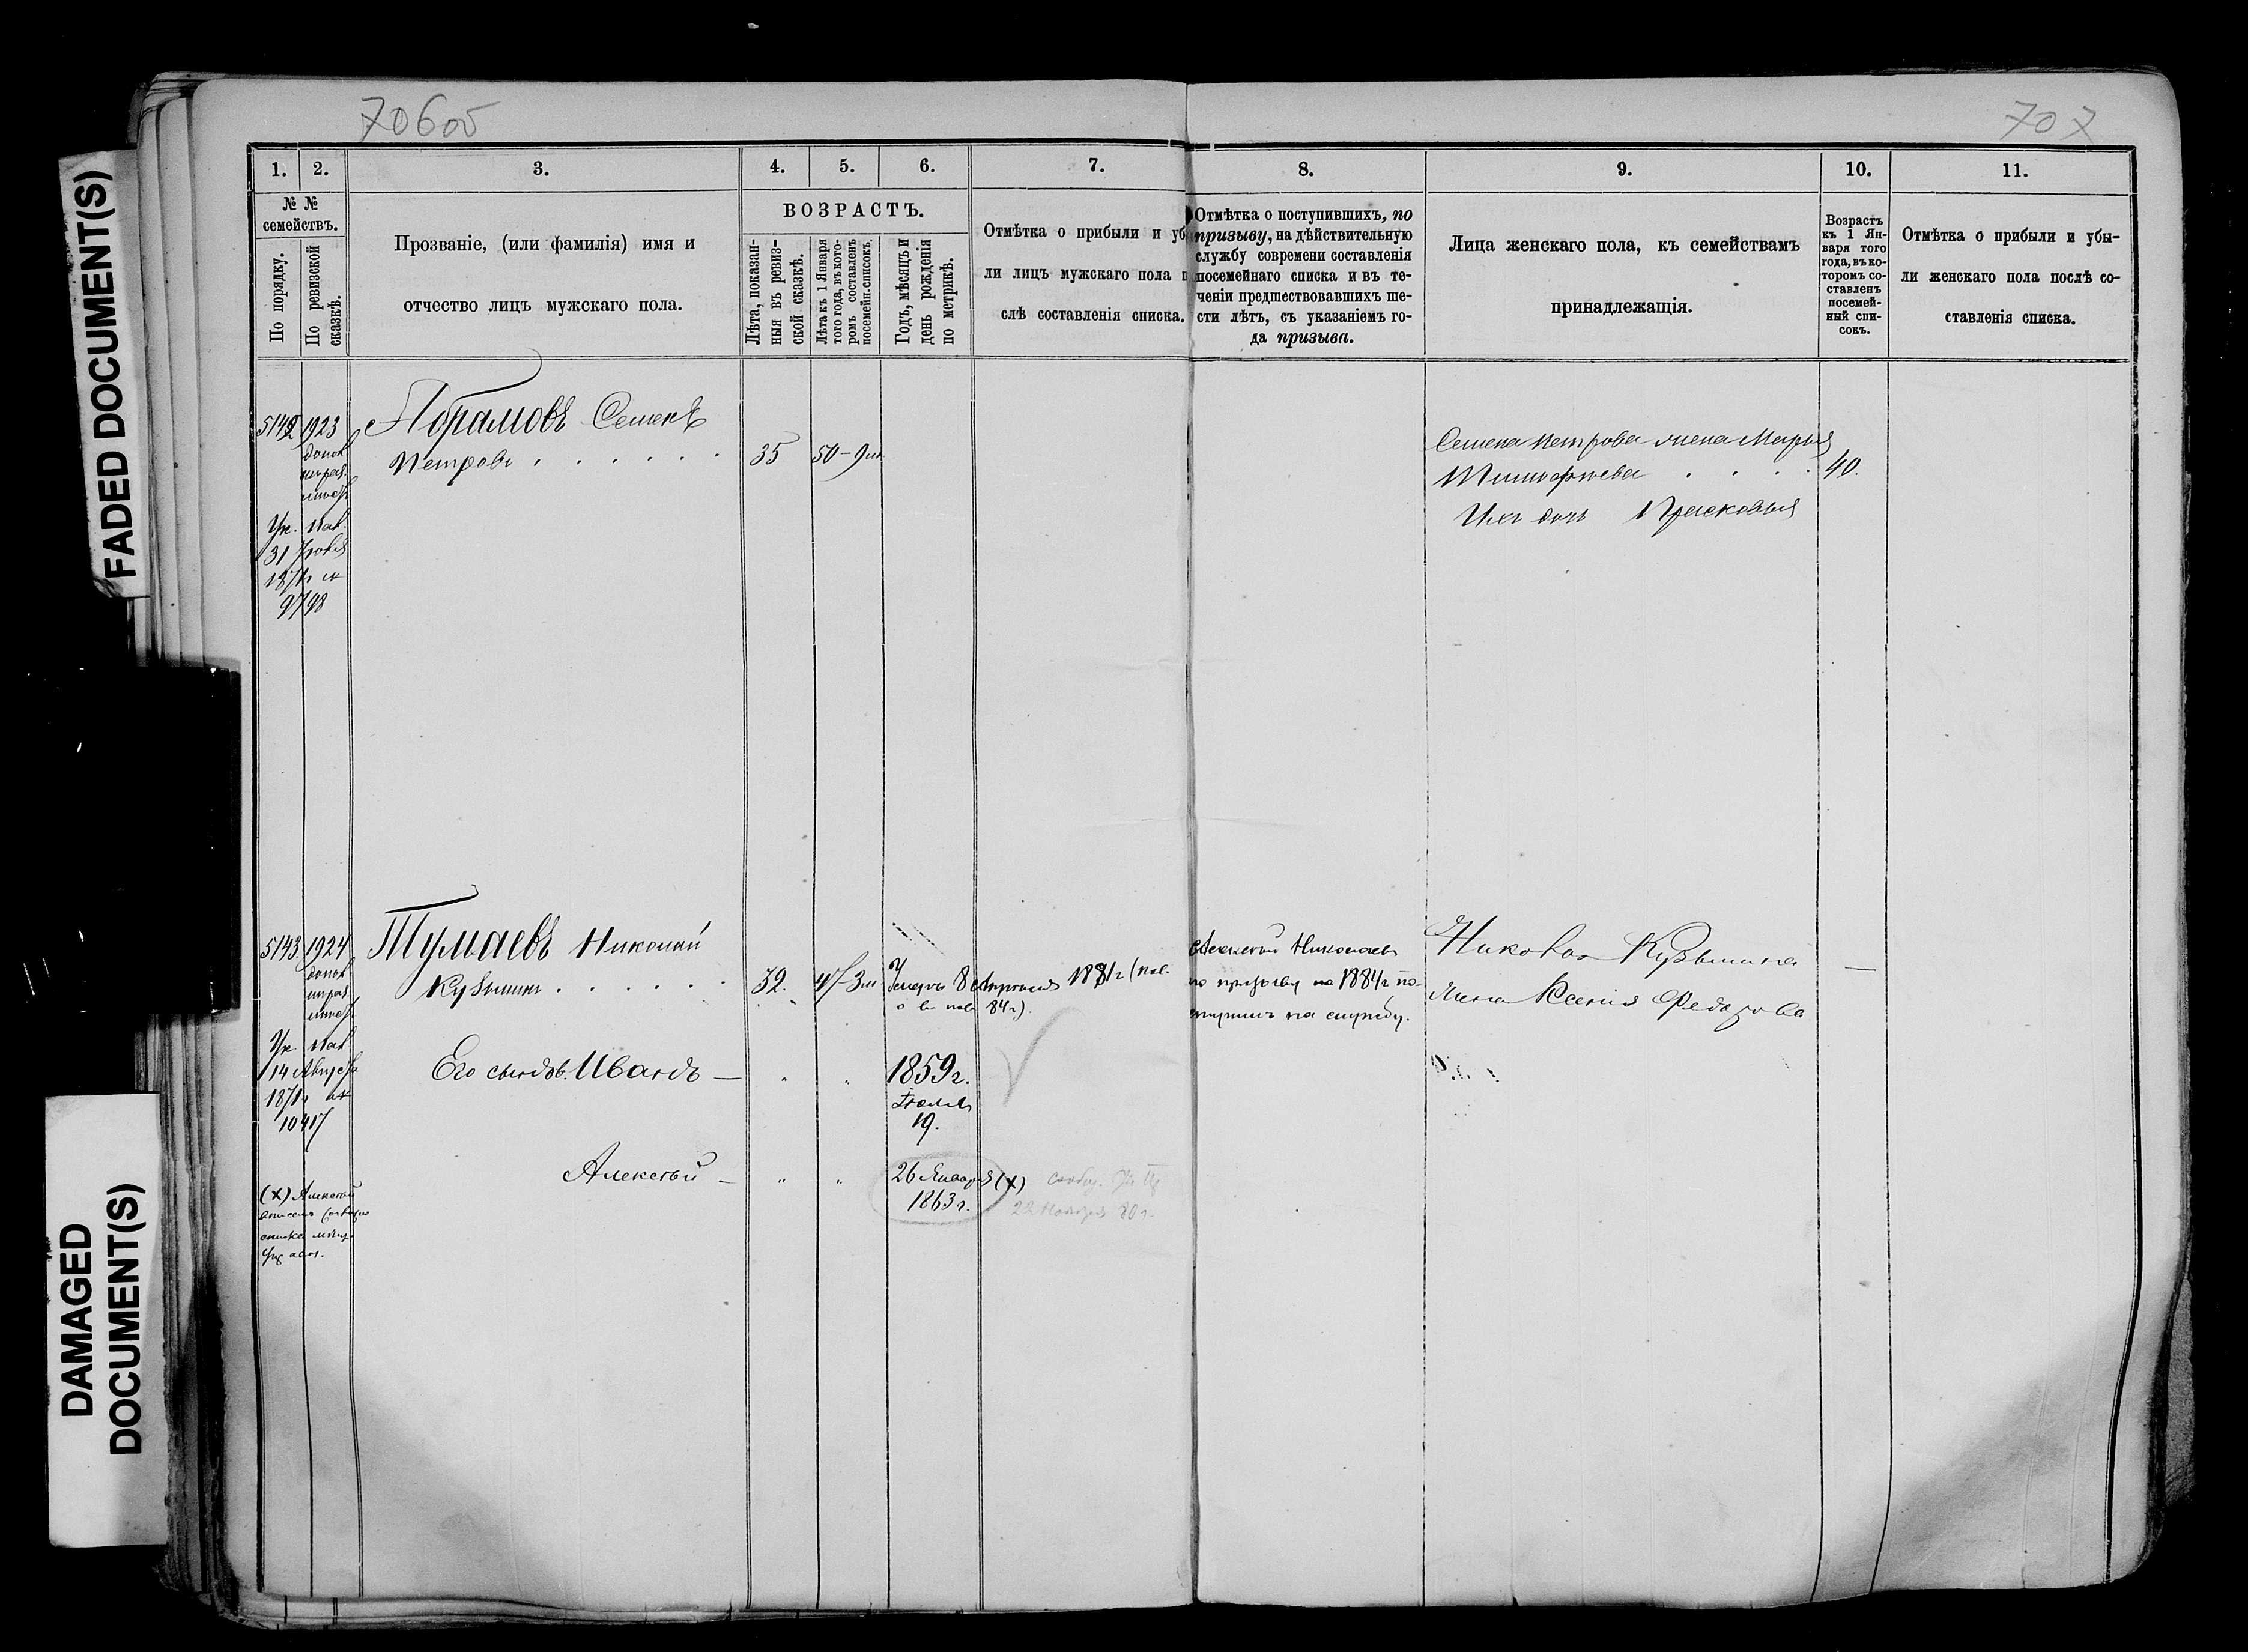 FADED DOCUMENT(S)
DAMAGED
DOCUMENT(S)
706об
707
1. 2. 3. 4. 5. 6. 7. 8. 9. 10. 11.
№ №
семействъ.
По порядку.
По ревизской
сказкѣ.
Прозваніе, (или фамилія) имя и
отчество лицъ мужскаго пола.
ВОЗРАСТЪ.
Лѣта, показан-
ныя въ ревиз-
ской сказкѣ.
Лѣта къ 1 Января
того года, въ кото-
ромъ составленъ
посемейн. списокъ.
Годъ, мѣсяцъ и
день рожденія
по метрикѣ.
Отмѣтка о прибыли и уб
ли лицъ мужскаго пола п
слѣ составленія списка.
Отмѣтка о поступившихъ, по
призыву, на дѣйствительную
службу современи составленія
посемейнаго списка и въ те-
ченіи предшествовавшихъ ше-
сти лѣтъ, съ указаніемъ го-
да призыва.
Лица женскаго пола, къ семействамъ
принадлежащія.
Возрастъ
къ 1 Ян-
варя того
года, въ ко-
торомъ со-
ставленъ
посемей-
ный спи-
сокъ.
Отмѣтка о прибыли и убы-
ли женскаго пола послѣ со-
ставленія списка.
5142 1923
Абрамовъ Семенъ
Петровъ 35 50-9м
Ук. Пал.
31
1871г №
9798
Семена Петрова жена Марья
Тимофѣева 40.
Ихъ дочь Прасковья
5143. 1924
Тумаевъ Николай
Кузьминъ 32. 47-3м
Умеръ 8 Апрѣля 1881г (
84г.)
Алексѣй Николаевъ
по призыву на 1884г по-
ступилъ на службу.
Николая Кузьмина —
жена Ксенія Федорова
Ук. Пал.
14 Августа
1871г №
10417
Его сыновья Иванъ — " " 1859г.
Іюля
19.
Алексѣй — " " 26 Января (х)
1863г.
22 Ноября 80г.
(х) Алексѣй